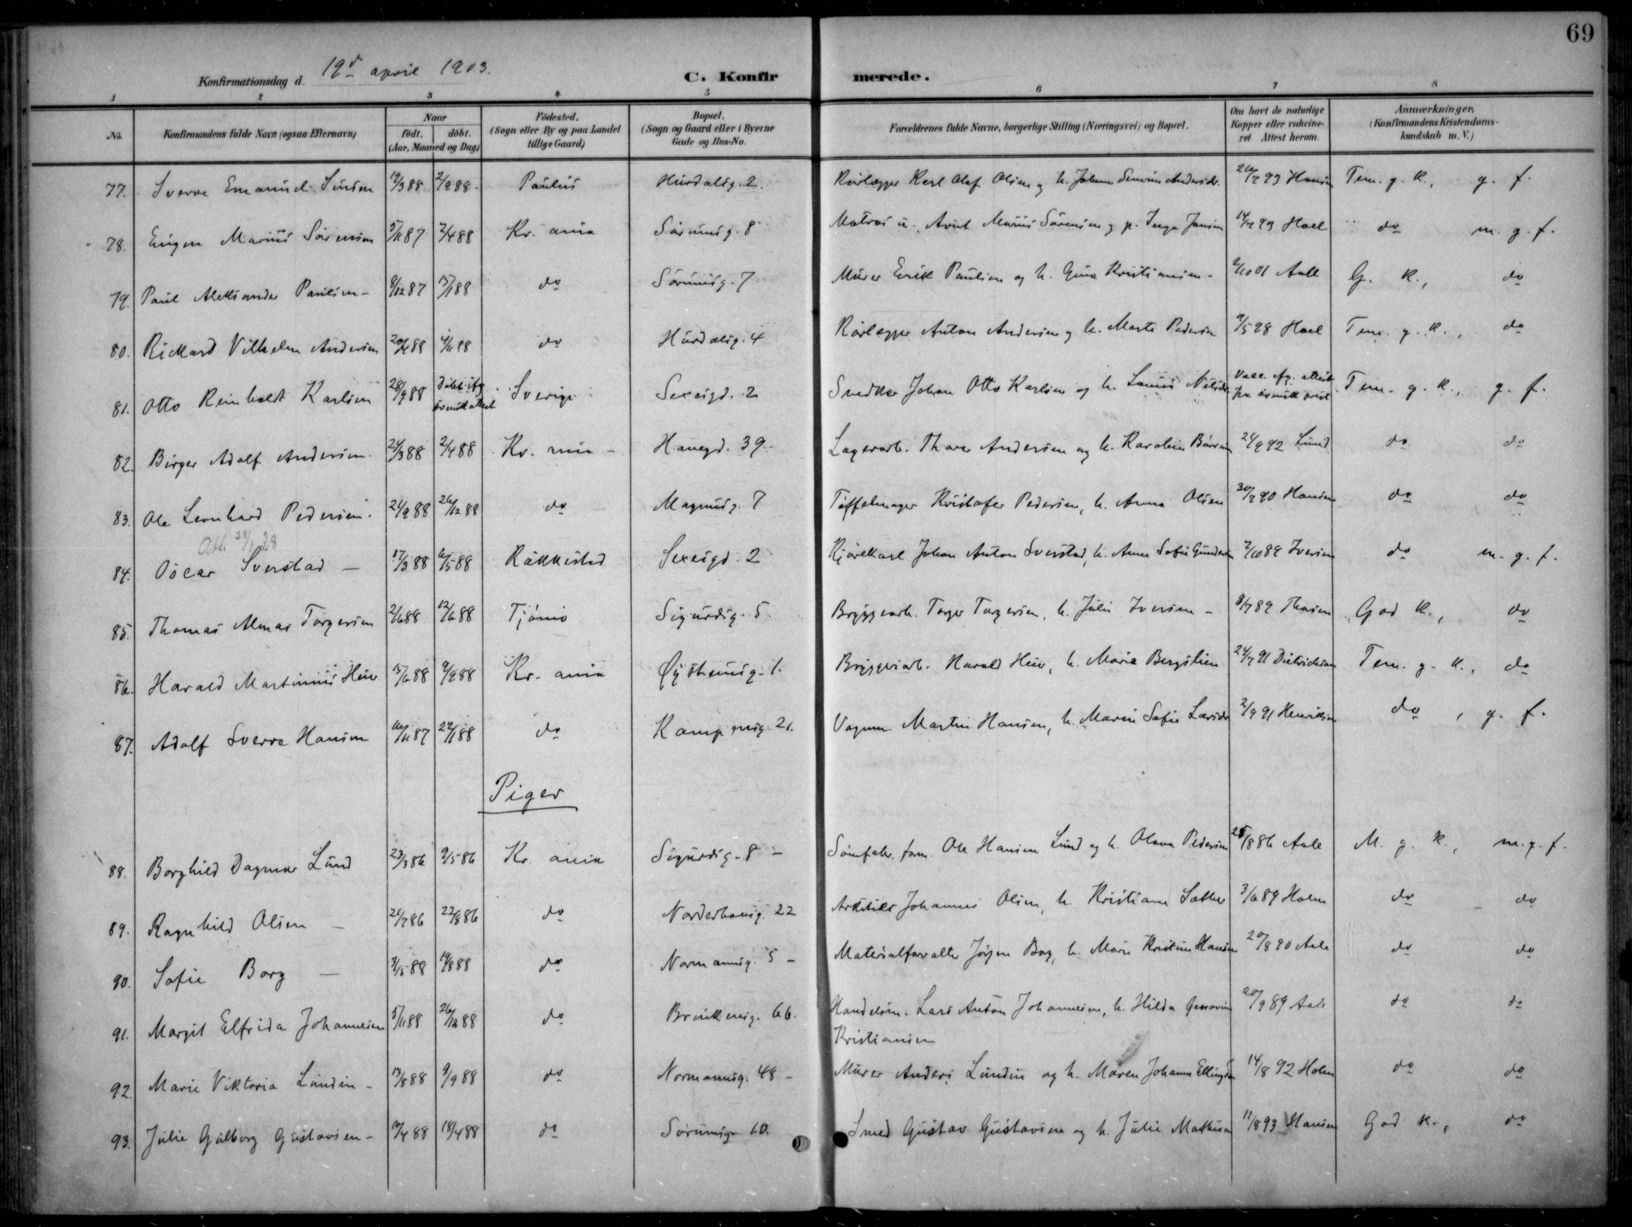 69
Konfirmationsdag d. 19d april 1903. C. Konfirmerede.
1 2 3 4 5 6 7 8
No. Konfirmandens fulde Navn (ogsaa Efternavn) Naar født. døbt. (Aar, Maaned og Dag) Fødested. (Sogn eller By og paa Landet tillige Gaard) Bopæl. (Sogn og Gaard eller i Byerne Gade og Hus-No. Forældrenes fulde Navne, borgerlige Stilling (Næringsvei) og Bopæl. Om havt de naturlige Kopper eller vakcineret Attest herom. Anmærkninger. (Konfirmandens Kristendomskundskab m. V.)
77. Sverre Emanuel 88 88 Paulus Hurdalsg. 2. Rørlægger Karl Olaf Olsen og h. Johanne 93 Hansen Tem. g. K., g. f.
78. Eugen Marius Sørensen 87 2/4 88 Kr. ania Sørumsg. 8 Matros u. Marius Sørensen og p. Inga Jansen 93 Hoel do m. g. f.
79. Paul Aleksander Paulsen - 9/12 87 15/1 88 do Sørumsg. 7 Murer Erik Paulsen og h. Gina Kristiansen - 2/10 01 Aall G. K., do
80. Rickard Vilhelm Andersen 88 88 do Hurdalsg. 4 Rørlægger Anton Andersen og h. Marte Pedersen 98 Hoel Tem. g. K., do
81. Otto Reinholdt Karlsen 28/9 88 døbt ifg. svensk attest Sverige Sexesgd. 2 Snedker Johan Otto Karlsen og h. Vacc. ifg. attest fra svensk præst Tem. g. K., g. f.
82. Birger Adolf Andersen 24/3 88 2/4 88 Kr. ania - Hanegd. 39. Lagerarb. Thore Andersen og h. Karoline 24/9 92 Lund do do
83. Ole Leonhard Pedersen. 24/9 88 26/12 88 do Magnusg. 7 Tøffelmager Kristofer Pedersen, h. Anna Olsen 90 Hansen do do
Att. 28
84. Oscar Sverstad - 17/3 88 6/5 88 Rakkestad Sexesgd. 2 Kjørekarl Johan Anton Sverstad, h. Anne Sofie Gundersen 7/10 89 Iversen do m. g. f.
85. Thomas Almar Torgersen 2/6 88 12/6 88 Tjømø Sigurdsg. 5 Bryggearb. Torger Torgersen, h. Julie Iversen - 9/7 89 Thorsen God K., do
86. Harald Martinius 88 9/9 88 Kr. ania Øystensg. 1. Bryggeriarb. Harald h. Marie Bergitte 91 Didrichsen Tem. g. K., do
87. Adolf Sverre Hansen 16/11 87 22/1 88 do Kampensg. 21. Vognm. Martin Hansen, h. Maren Sofie 2/9 91 Henriksen do, g. f.
Piger
88. Borghild Dagmar Lund 23/3 86 9/5 86 Kr. ania Sigurdsg. 8 - Ole Hansen Lund og h. Olava Pedersen 25/8 86 Aale M. g. K., m. g. f.
89. Ragnhild Olsen - 21/7 86 22/8 86 do Norderhovsg. 22 Johannes Olsen, h. Kristiane Sæther 3/6 89 Holm do do
90. Sofie Borg - 3/5 88 19/8 88 do Normannsg. 5 - Materialforvalter Jørgen Borg, h. Marie Kristine Hansen 20/8 90 Aale do do
91. Margit Elfrida Johannesen 5/11 88 26/12 88 do Brinkensg. 66. Handelsm. Lars Anton Johannesen, h. Hilda 20/9 89 Aale do do
Kristiansen
92 Marie Viktoria Lundin - 13/8 88 9/9 88 do Normannsg. 48 - Murer Anders Lundin og h. Maren Johanne Ellingsen 14/8 92 Holm do do
93. Julie Gulborg Gustavsen - 88 18/4 88 do Sørumsg. 10. Smed Gustav Gustavsen og h. Julie Mathisen 11/8 93 Hansen God K., do